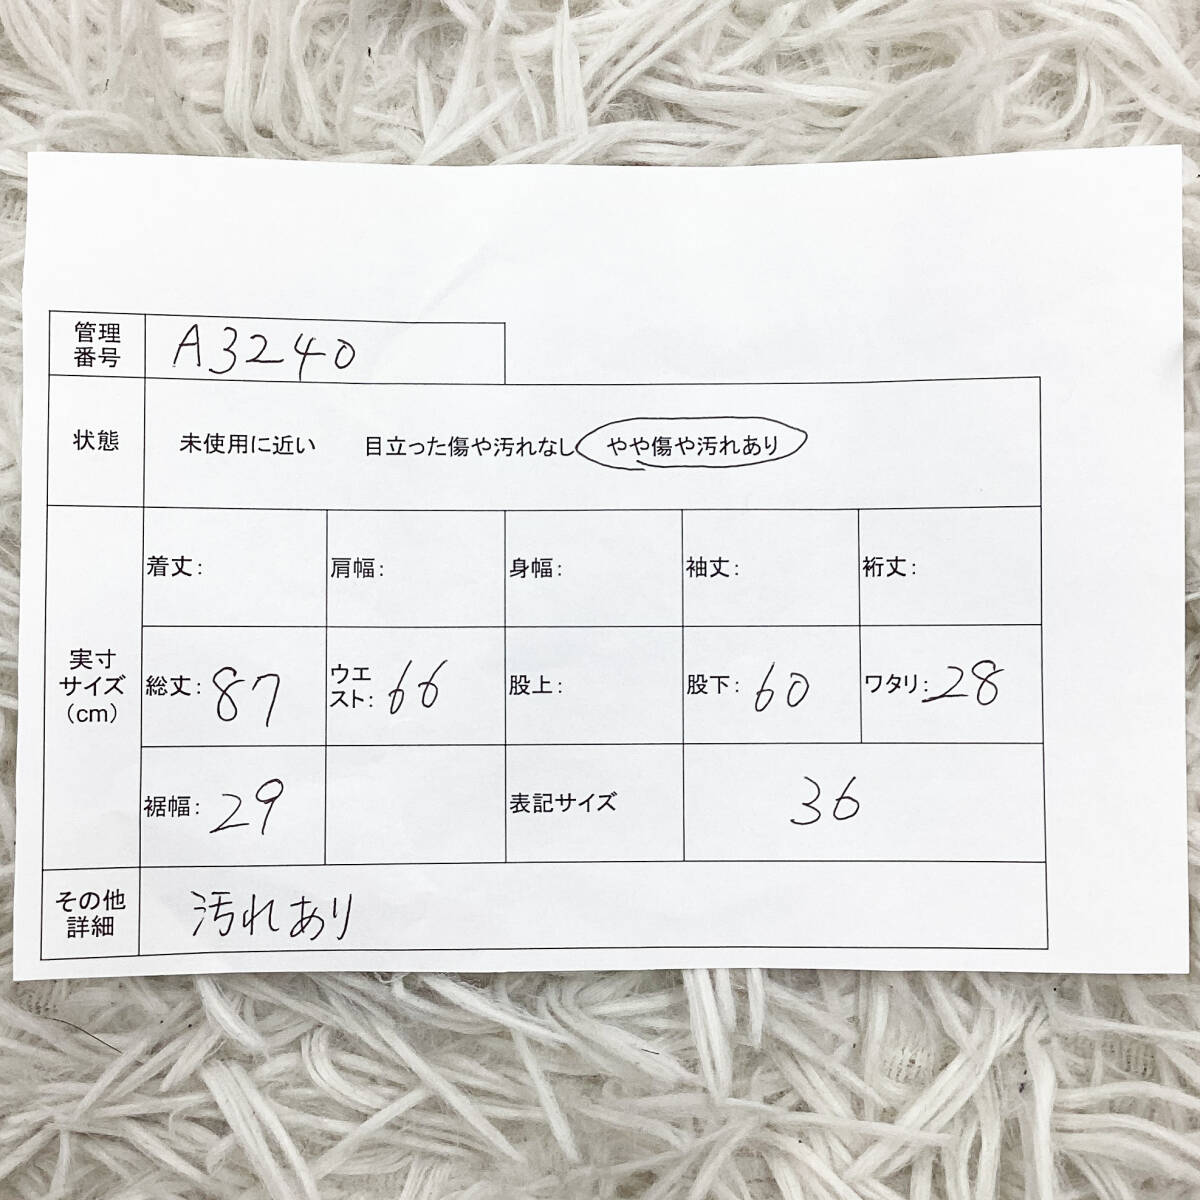 管理
番号
A3240
状態
未使用に近い 目立った傷や汚れなし やや傷や汚れあり
実寸
サイズ
（cm）
着丈: 肩幅: 身幅: 袖丈: 裄丈:
総丈: 87
ウエ
スト: 66
股上:
股下: 60
ワタリ: 28
裾幅: 29
表記サイズ
36
その他
詳細
汚れあり